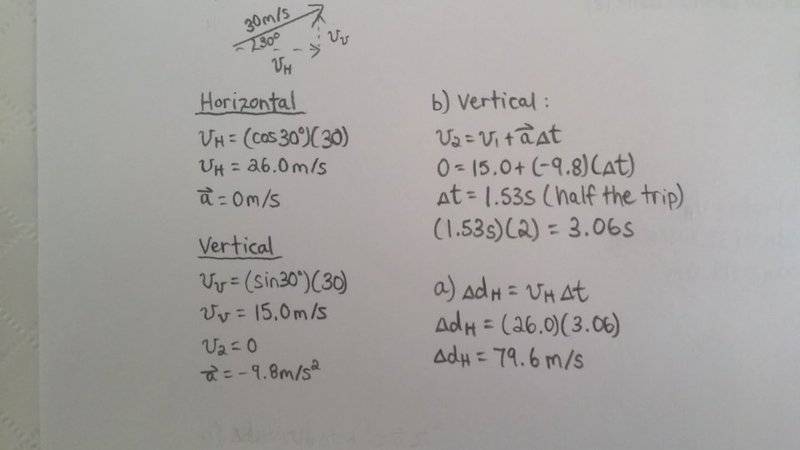 30m/s
30°
Vv
VH
Horizontal
VH = (cos30°)(30)
VH = 26.0m/s
a⃗ = 0m/s
Vertical
Vv = (sin30°)(30)
Vv = 15.0m/s
V2 = 0
a⃗ = -9.8m/s²
b) Vertical :
V2 = V1 + a⃗Δt
0 = 15.0 + (-9.8)(Δt)
Δt = 1.53s (half the trip)
(1.53s)(2) = 3.06s
a) ΔdH = VHΔt
ΔdH = (26.0)(3.06)
ΔdH = 79.6 m/s